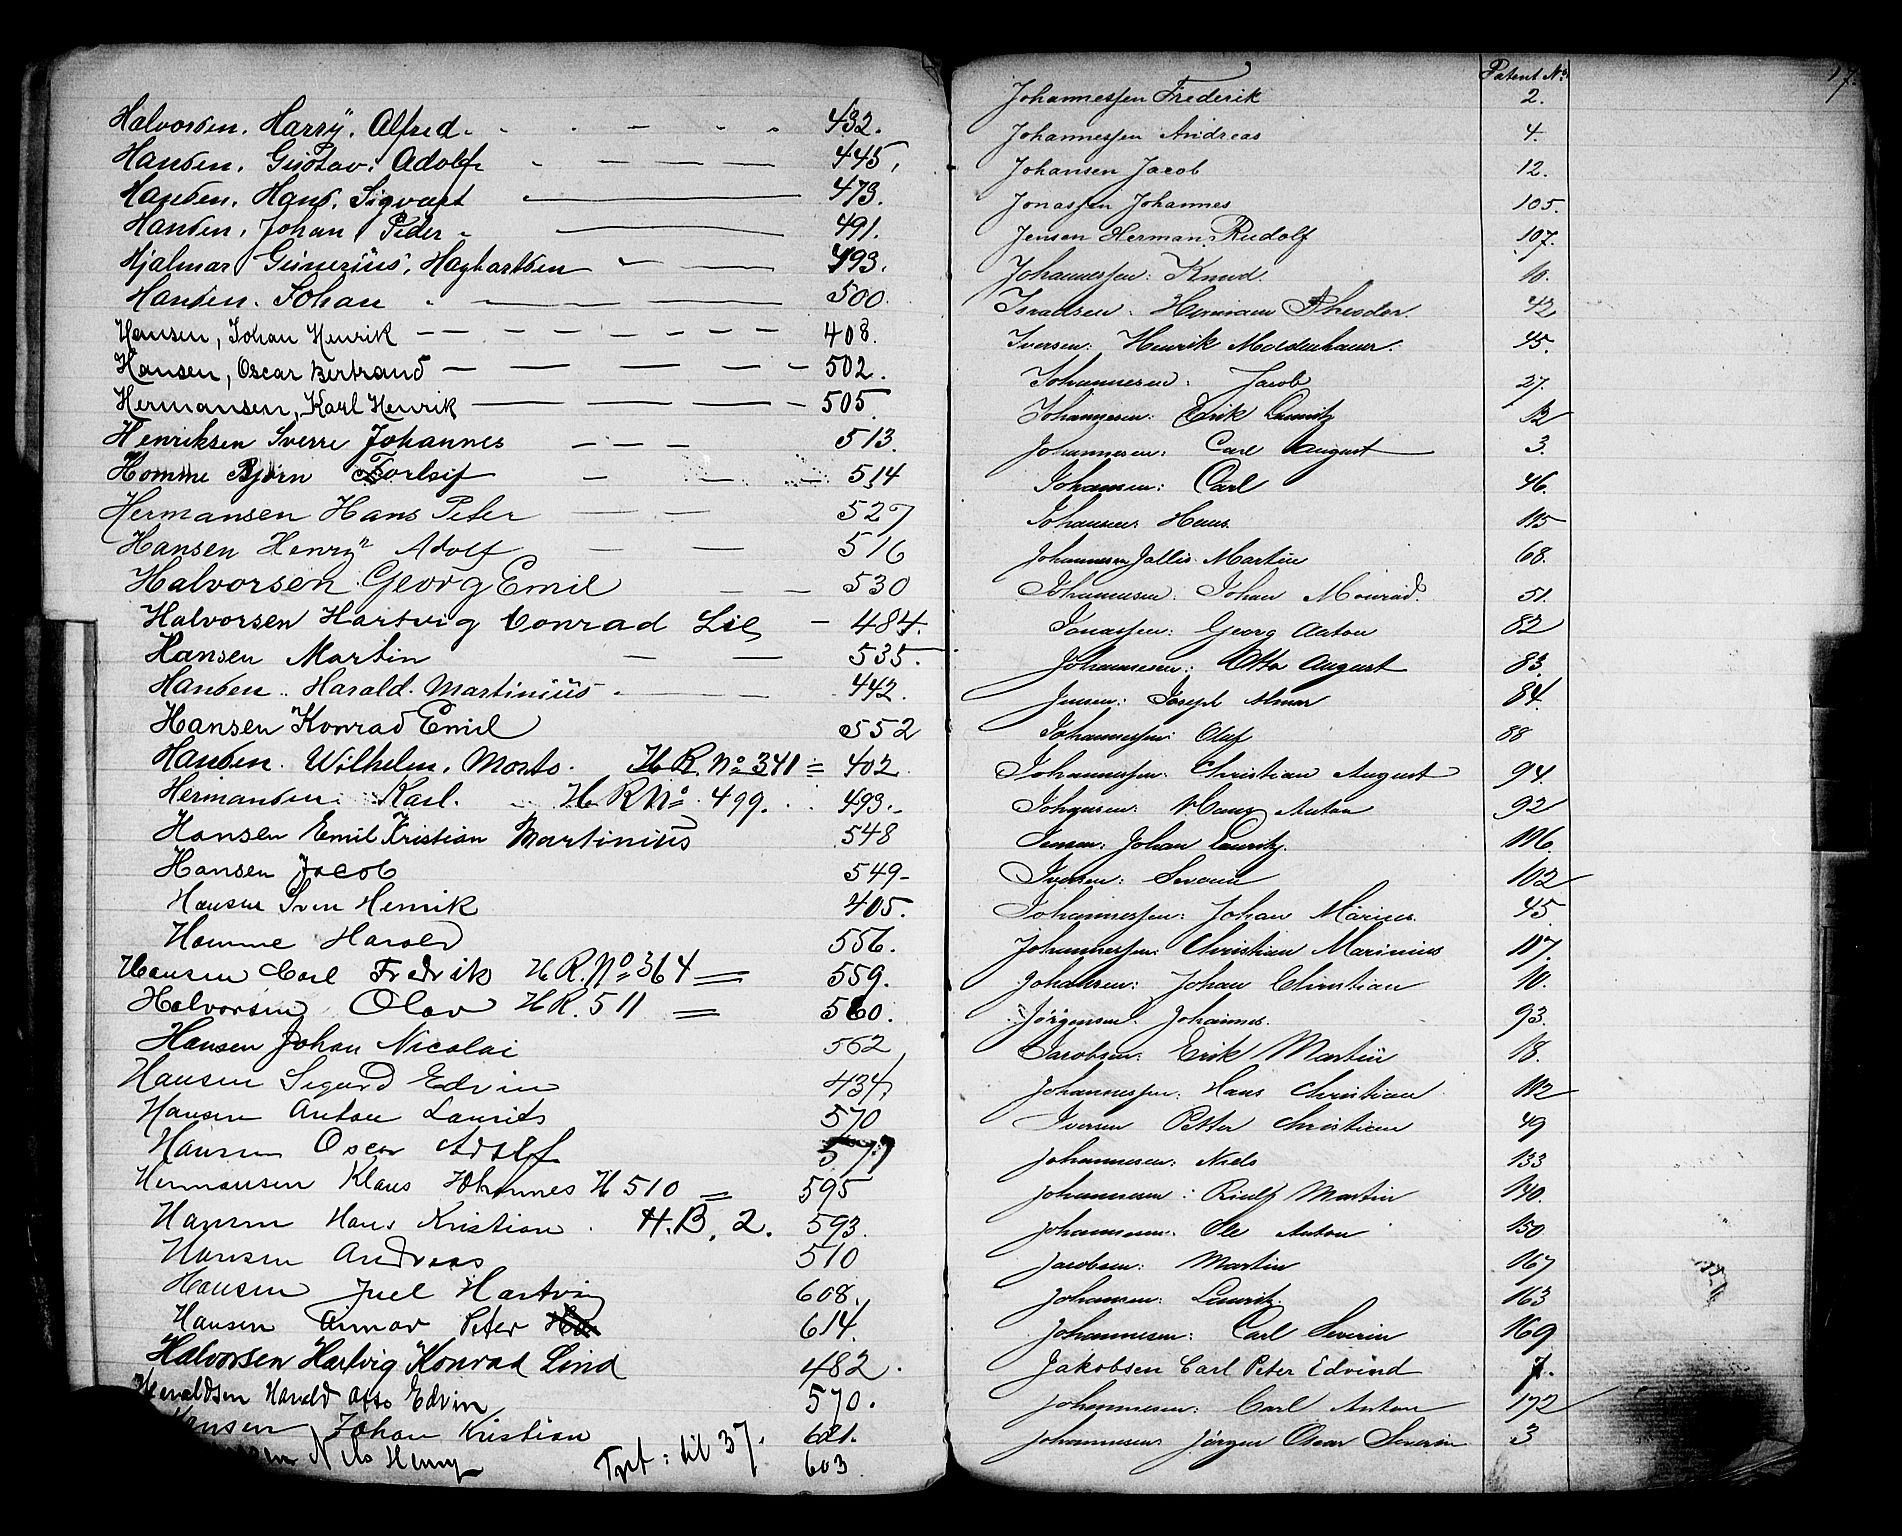 Halvorsen, Harry, Alfred. 432.
Hansen, Gustav, Adolf 445,
Hansen, Hans, Sigvart 473.
Hansen, Johan Peder 491.
Hjalmar Gunerius, Hagbartsen 493.
Hansen, Johan 500.
Hansen, Johan Henrik 408.
Hansen, Oscar Bertrand 502.
Hermansen, Karl Henrik 505.
Henriksen Sverre Johannes 513.
Homme Bjørn Torleif 514
Hermansen Hans Peter 527
Hansen Henry Adolf 516
Halvorsen Georg Emil 530
Halvorsen Hartvig Conrad Lie 484.
Hansen Martin 535.
Hansen Harald Martinius 442.
Hansen Konrad Emil 552
Hansen. Wilhelm, H R. No 341 = 402.
Hermansen Karl. H. R No 499. 493.
Hansen Emil Kristian Martinius 548
Hansen Jacob 549
Hansen Sven Henrik 405.
Homme Harald 556.
Hansen Carl Fredrik H R. No 364 = 559.
Halvorsen Olav H R. 511 = 560.
Hansen Johan Nicolai 562
Hansen Sigurd Edvin 434
Hansen Anton Laurits 570
Hansen Oscar Adolf 577
Hermansen Klaus Johannes H 510 = 595
Hansen Hans Kristian. H.B. 2. 593.
Hansen Andreas 510
Hansen Juel Hartvig 608.
Hansen Peter 614.
Halvorsen Hartvig Konrad Lind 482.
Haraldsen Harald Otto Edvin 570.
Johan Kristian 621.
Nils Henry Trpt: til 37. 603
17.
Patent No
Johannessen Frederik 2.
Johannessen Andreas 4.
Johansen Jacob 12.
Jonassen Johannes 105.
Jensen Herman Rudolf 107.
Johannessen: Knud. 10.
Israelsen: Herman Theodor. 42
Iversen: Henrik Moldenhauer. 45.
Johannesen: Jacob 27.
Johannesen: Erik Lauritz 12
Johannesen: Carl August 3.
Johansen: Carl 46.
Johannesen Hans. 115
Johannesen Martin 68.
Johannesen: Johan Monrad. 51.
Jonassen: Georg Anton 82
Johannesen: Otto August 83.
Jensen: Joseph 84.
Johannessen: Oluf 88
Johannessen: Christian August 94.
Johansen: Hans Anton 92
Jensen: Johan Lauritz. 116.
Iversen: Severin 102
Johannessen: Johan Marius. 45
Johannessen: Christian Marinius 117.
Johansen: Johan Christian 10.
Jørgensen Johannes. 93.
Jacobsen: Erik Martin 18.
Johannessen: Hans Christian 112
Iversen Petter Christian 49
Johannesen: Niels 133
Johannesen: Martin 140.
Johannesen: Ole Anton 150
Jacobsen: Martin 167
Johansen: Laurits. 163
Johannesen: Carl Severin 169
Jakobsen Carl Peter Edvind 7.
Johannesen: Carl Anton 172
Johannesen Jørgen Oscar Severin 3